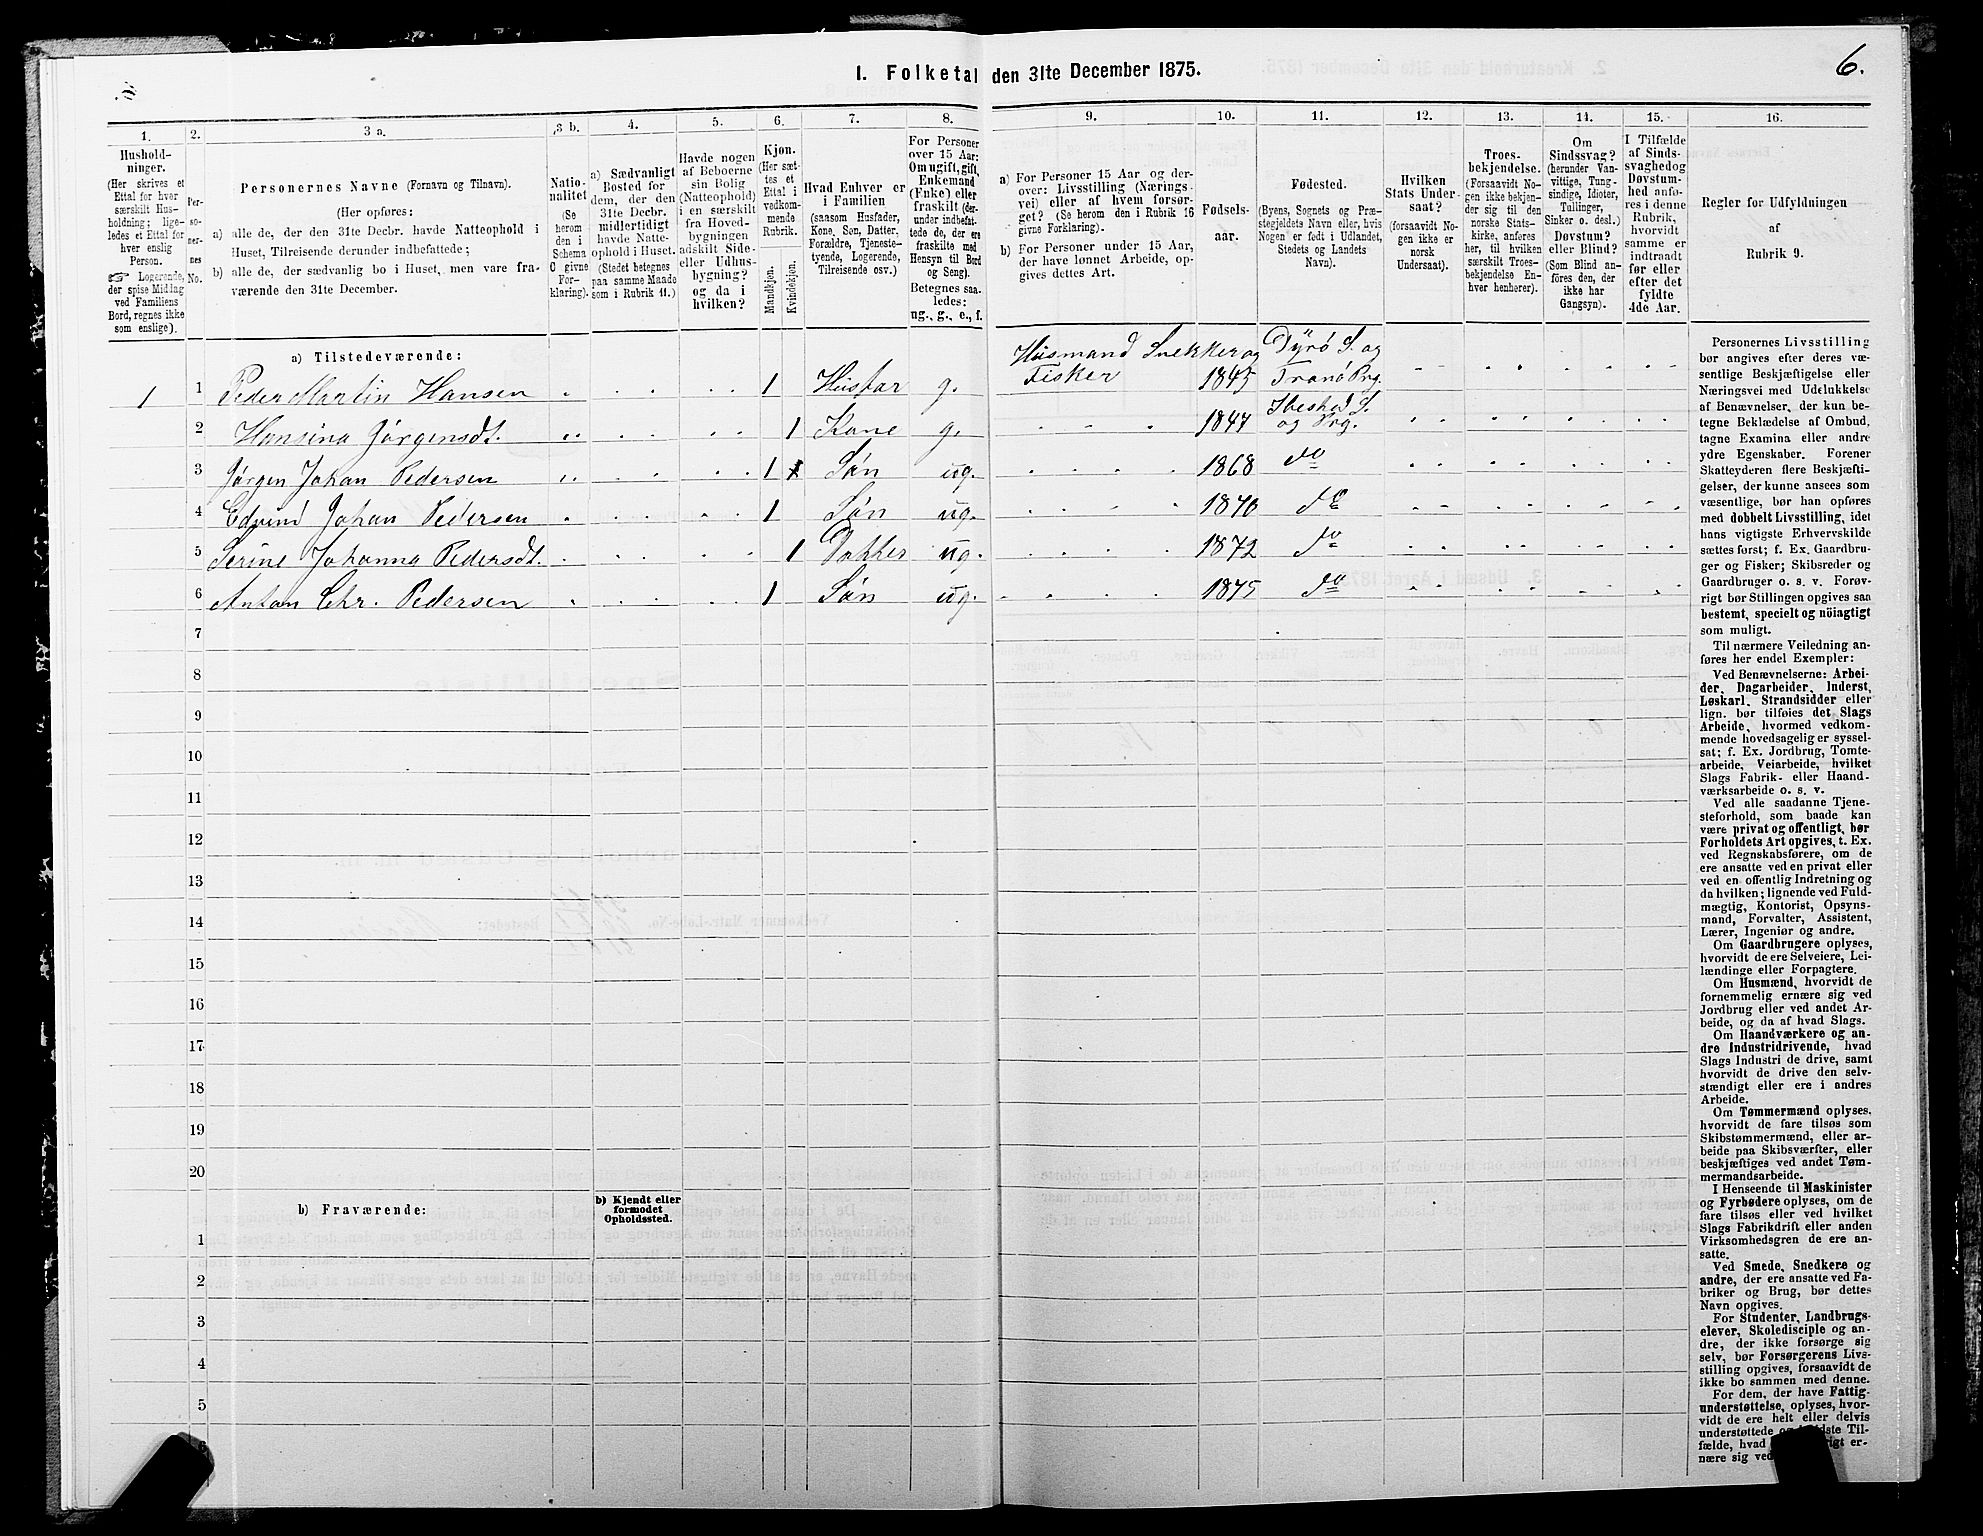 I. Folketal den 31te December 1875.
6.
1.
Hushold-
ninger.
(Her skrives et
Ettal for hver
særskilt Hus-
holdning; lige-
ledes et Ettal for
hver enslig
Person.
☞ Logerende,
der spise Middag
ved Familiens
Bord, regnes ikke
som enslige).
2.
Per-
so-
ner-
nes
No.
3 a.
Personernes Navne (Fornavn og Tilnavn).
(Her opføres:
a) alle de, der den 31te Decbr. havde Natteophold i
Huset, Tilreisende derunder indbefattede;
b) alle de, der sædvanlig bo i Huset, men vare fra-
værende den 31te December.
3 b.
Natio-
nalitet
(Se
herom
den i
Schema
O givne
For-
klaring).
4.
a) Sædvanligt
Bosted for
dem, der den
31te Decbr.
midlertidigt
havde Natte-
ophold i Huset.
(Stedet betegnes
paa samme Maade
som i Rubrik 11.)
5.
Havde nogen
af Beboerne
sin Bolig
(Natteophold)
i en særskilt
fra Hoved-
bygningen
adskilt Side-
eller Udhus-
bygning?
og da i
hvilken?
6.
Kjøn.
(Her sæt-
tes et
Ettal i
vedkom-
mende
Rubrik.
Mandkjøn.
Kvindekjøn.
7.
Hvad Enhver er
i Familien
(saasom Husfader,
Kone, Søn, Datter,
Forældre, Tjeneste-
tyende, Logerende,
Tilreisende osv.)
8.
For Personer
over 15 Aar:
Om ugift, gift,
Enkemand
(Enke) eller
fraskilt (der-
under indbefat-
tede de, der ere
fraskilte med
Hensyn til Bord
og Seng).
Betegnes saa-
ledes:
ug., g., e., f.
9.
a) For Personer 15 Aar og der-
over: Livsstilling (Nærings-
vei) eller af hvem forsør-
get? (Se herom den i Rubrik 16
givne Forklaring).
b) For Personer under 15 Aar,
der have lønnet Arbeide, op-
gives dettes Art.
10.
Fødsels-
aar.
11.
Fødested.
(Byens, Sognets og Præ-
stegjeldets Navn eller, hvis
Nogen er født i Udlandet,
Stedets og Landets
Navn).
12.
Hvilken
Stats Under-
saat?
(forsaavidt No-
gen ikke er
norsk
Undersaat).
13.
Troes-
bekjendelse.
(Forsaavidt No-
gen ikke bekjen-
der sig til den
norske Stats-
kirke, anføres
her, til hvilken
særskilt Troes-
bekjendelse En-
hver henhører).
14.
Om
Sindssvag?
(herunder Van-
vittige, Tung-
sindige, Idioter,
Tullinger,
Sinker o. desl.)
Døvstum?
eller Blind?
(Som Blind an-
føres den, der
ikke har
Gangsyn).
15.
I Tilfælde
af Sinds-
svaghed og
Døvstum-
hed anfø-
res i denne
Rubrik,
hvorvidt
samme er
indtraadt
før eller
efter det
fyldte
4de Aar.
16.
Regler for Udfyldningen
af
Rubrik 9.
a) Tilstedeværende:
1 1 Peder Martin Hansen 1 Husfar g. Husmand Snekker og Fisker 1845 Dyrø S. og Tranø Prg.
2 Hansina Jørgensdt. 1 Kone g. 1847 Ibestad S. og Prg.
3 Jørgen Johan Pedersen 1 Søn ug. 1868 do
4 Edvind Johan Pedersen 1 Søn ug. 1870 do
5 Serine Johanna Pedersdt. 1 Datter ug. 1872 do
6 Anton Chr. Pedersen 1 Søn ug. 1875 do
7
8
9
10
11
12
13
14
15
16
17
18
19
20
b) Fraværende:
b) Kjendt eller
formodet
Opholdssted.
1
2
3
4
5
Personernes Livsstilling
bør angives efter deres væ-
sentlige Beskjæftigelse eller
Næringsvei med Udelukkelse
af Benævnelser, der kun be-
tegne Beklædelse af Ombud,
tagne Examina eller andre
ydre Egenskaber. Forener
Skatteyderen flere Beskjæfti-
gelser, der kunne ansees som
væsentlige, bør han opføres
med dobbelt Livsstilling, idet
hans vigtigste Erhvervskilde
sættes først; f. Ex. Gaardbru-
ger og Fisker; Skibsreder og
Gaardbruger o. s. v. Forøv-
rigt bør Stillingen opgives saa
bestemt, specielt og nöiagtigt
som muligt.
Til nærmere Veiledning an-
føres her endel Exempler:
Ved Benævnelserne: Arbei-
der, Dagarbeider, Inderst,
Løskarl, Strandsidder eller
lign. bør tilføies det Slags
Arbeide, hvormed vedkom-
mende hovedsagelig er syssel-
sat; f. Ex. Jordbrug, Tomte-
arbeide, Veiarbeide, hvilket
Slags Fabrik- eller Haand-
værksarbeide o. s. v.
Ved alle saadanne Tjene-
steforhold, som baade kan
være privat og offentligt, bør
Forholdets Art opgives, t. Ex.
ved Regnskabsførere, om de
ere ansatte ved en privat eller
ved en offentlig Indretning og
da hvilken; lignende ved Fuld-
mægtig, Kontorist, Opsyns-
mand, Forvalter, Assistent,
Lærer, Ingeniør og andre.
Om Gaardbrugere oplyses,
hvorvidt de ere Selveiere, Lei-
lændinge eller Forpagtere.
Om Husmænd, hvorvidt de
fornemmelig ernære sig ved
Jordbrug eller ved andet Ar-
beide, og da af hvad Slags.
Om Haandværkere og an-
dre Industridrivende, hvad
Slags Industri de drive, samt
hvorvidt de drive den selv-
stændigt eller ere i andres
Arbeide.
Om Tømmermænd oplyses,
hvorvidt de fare tilsøs som
Skibstømmermænd, eller ar-
beide paa Skibsværfter, eller
beskjæftiges ved andet Tøm-
mermandsarbeide.
I Henseende til Maskinister
og Fyrbødere oplyses, om de
fare tilsøs eller ved hvilket
Slags Fabrikdrift eller anden
Virksomhedsgren de ere an-
satte.
Ved Smede, Snedkere og
andre, der ere ansatte ved Fa-
briker og Brug, bør dettes
Navn opgives.
For Studenter, Landbrugs-
elever, Skoledisciple og an-
dre, der ikke forsørge sig
selv, bør Forsørgerens Livs-
stilling opgives, forsaavidt de
ikke bo sammen med denne.
For dem, der have Fattig-
understøttelse, oplyses, hvor-
vidt de ere helt eller delvis
understøttede
fælde, hvad er-
nære sig ved